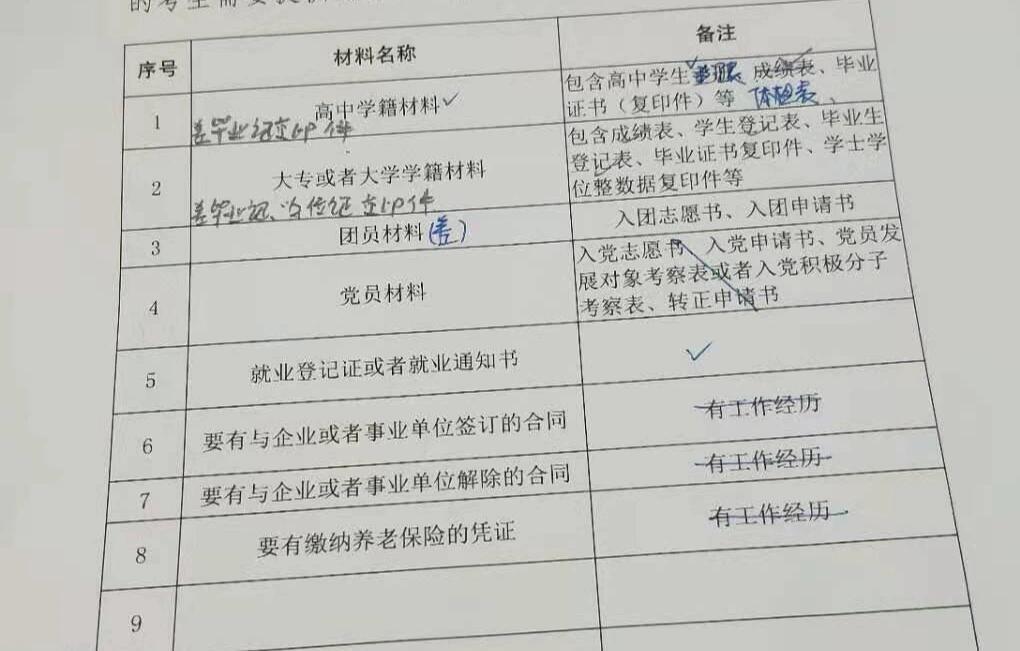 的考生需要提
序号 材料名称 备注
1 高中学籍材料✓ 包含高中学生 成绩表、毕业
证书（复印件）等 体检表、
差毕业证复印件
2 大专或者大学学籍材料 包含成绩表、学生登记表、毕业生
登记表、毕业证书复印件、学士学
位整数据复印件等
差毕业证、学位证复印件
3 团员材料(差) 入团志愿书、入团申请书
4 党员材料 入党志愿书、入党申请书、党员发
展对象考察表或者入党积极分子
考察表、转正申请书
5 就业登记证或者就业通知书 ✓
6 要有与企业或者事业单位签订的合同 有工作经历
7 要有与企业或者事业单位解除的合同 有工作经历
8 要有缴纳养老保险的凭证 有工作经历
9